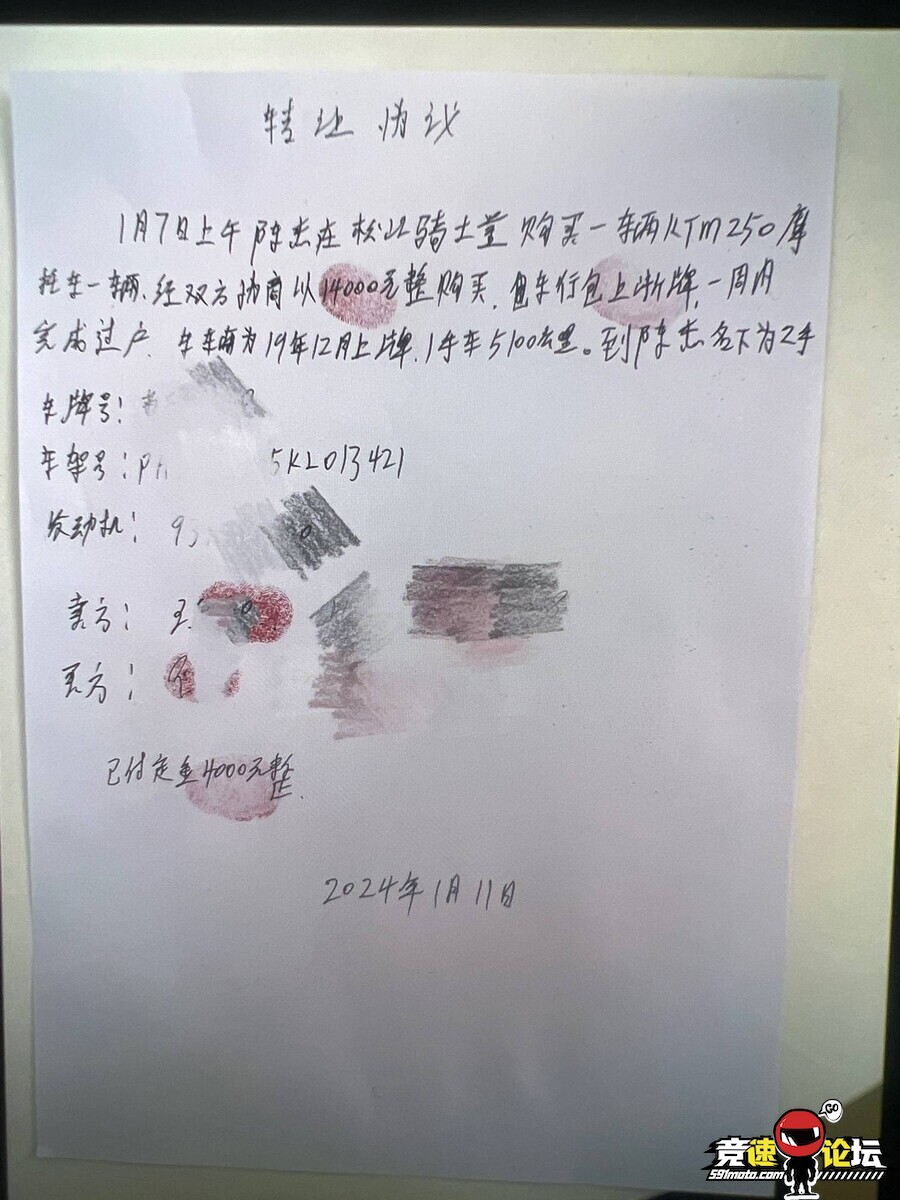 转让协议
1月7日上午陈杰在松江骑士堂购买一辆KTM250摩
托车一辆、经双方协商以14000元整购买,包车行包上浙牌,一周内
完成过户. 车车辆为19年12月上牌,1手车5100公里。到陈杰名下为2手
车牌号:
车架号:PA 5K2013421
发动机: 93 0
卖方: 王
买方:
已付定金4000元整.
2024年1月11日
GO
竞速论坛
591moto.com